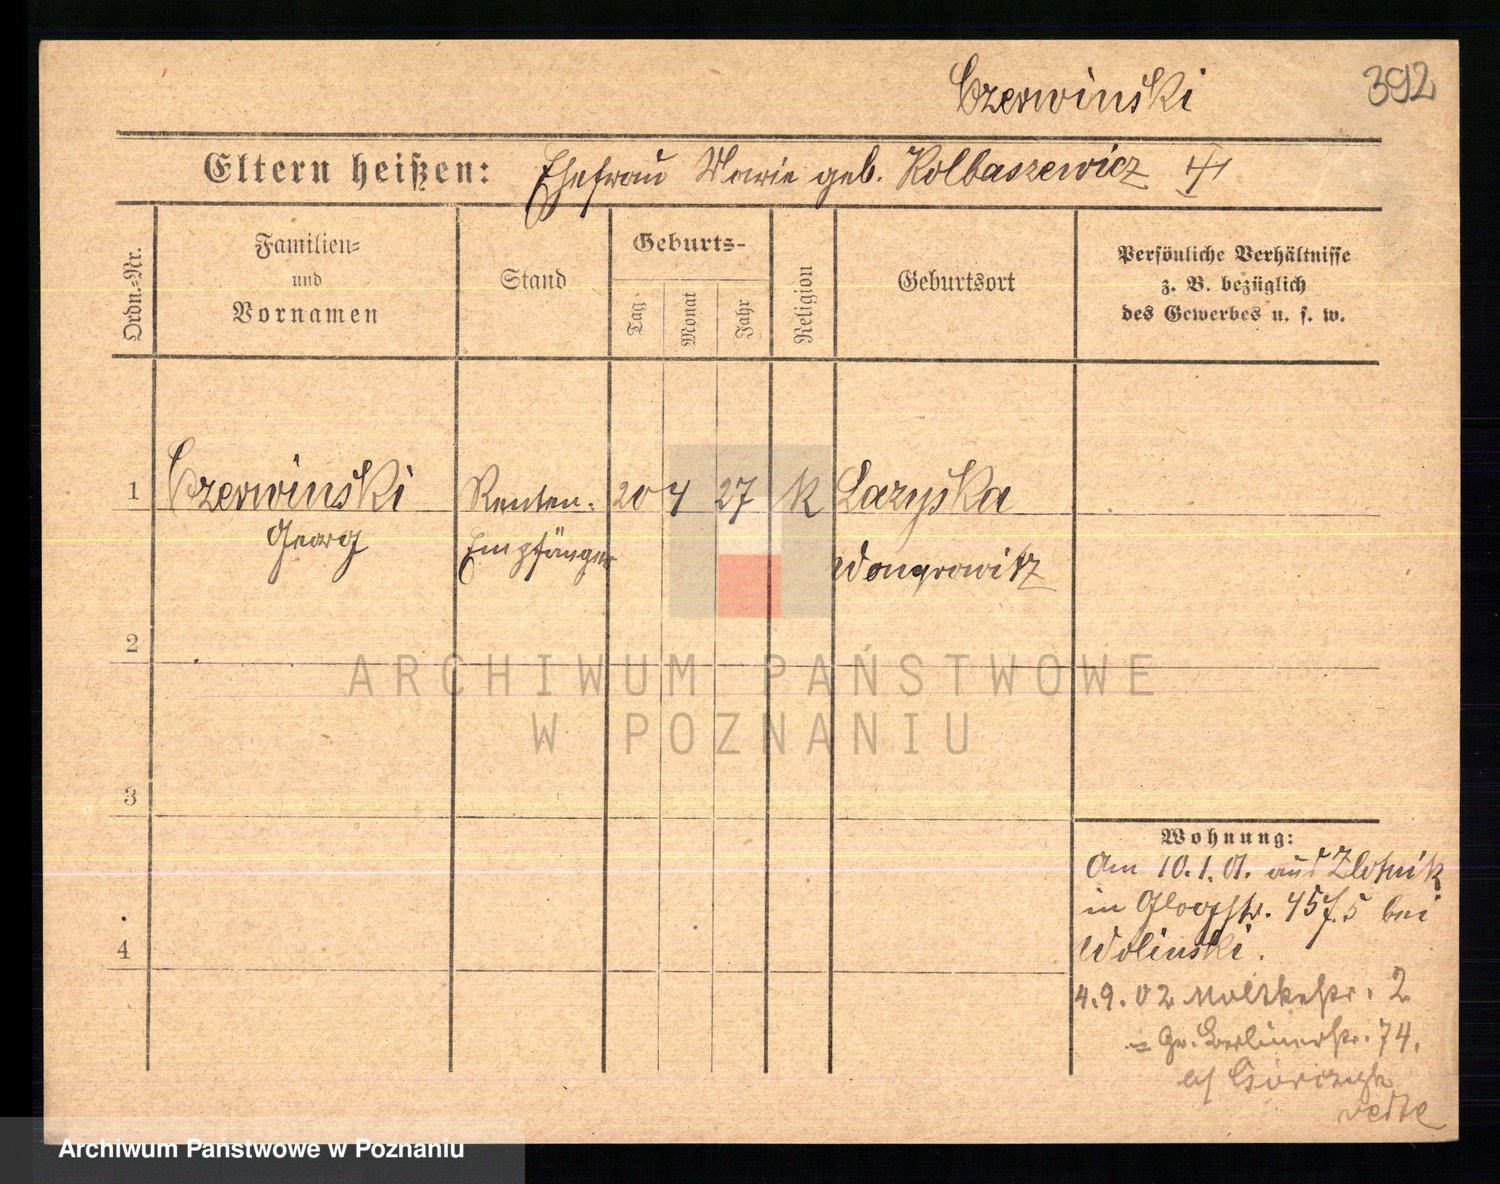 Czerwinski
392
Eltern heißen: Ehefrau Marie geb. Kolbaszewicz
Ordn.=Nr.
Familien=
und
Vornamen
Stand
Geburts-
Tag
Monat
Jahr
Religion
Geburtsort
Persönliche Verhältnisse
z. B. bezüglich
des Gewerbes u. s. w.
1 Czerwinski Renten= 20 4 27 K Lazyska
Georg Empfänger Wongrowitz
2
3
4
Wohnung:
Am 10.1.01. aus Zlotnik
in Glogstr. 45 bei
Wolinski.
4.9.02 Moltkestr. 2
= Gr. Berlinerstr. 74.
ARCHIWUM PAŃSTWOWE
W POZNANIU
Archiwum Państwowe w Poznaniu